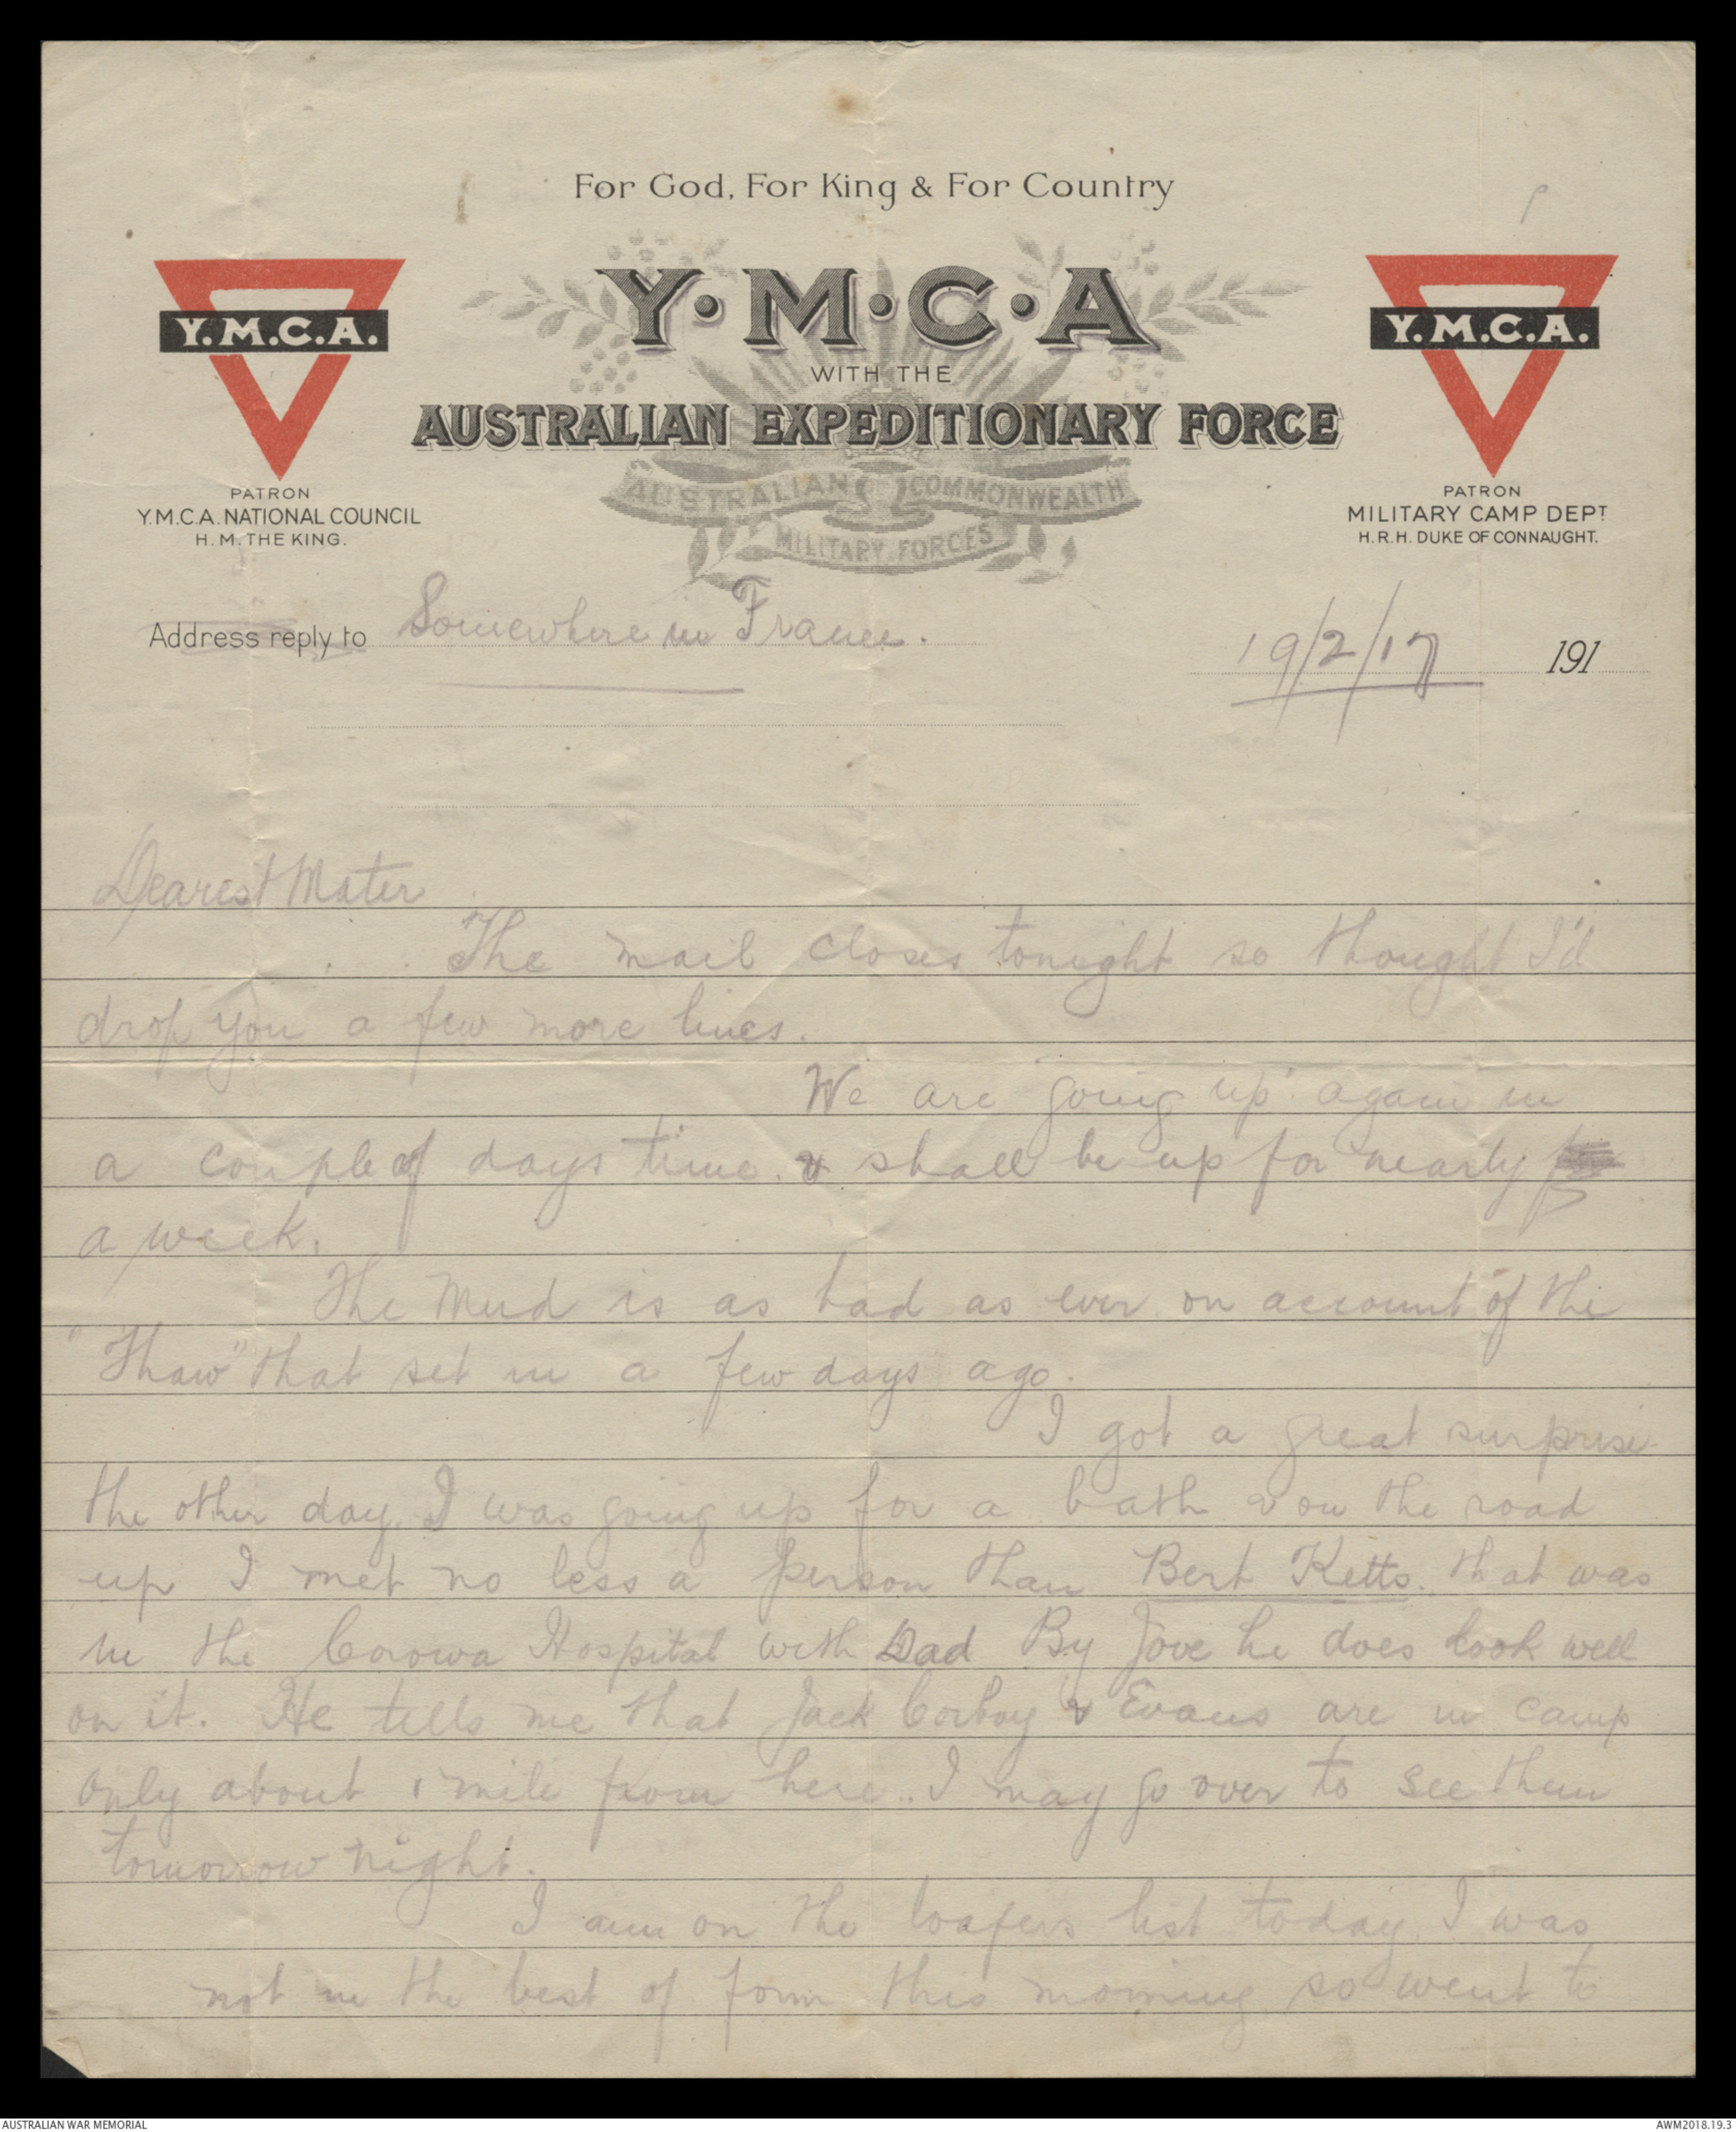 For God, For King & For Country
Y.M.C.A.
Y·M·C·A
Y.M.C.A.
WITH THE
AUSTRALIAN EXPEDITIONARY FORCE
AUSTRALIAN COMMONWEALTH
MILITARY FORCES
PATRON
Y.M.C.A. NATIONAL COUNCIL
H.M. THE KING.
PATRON
MILITARY CAMP DEPT
H.R.H. DUKE OF CONNAUGHT.
Address reply to Somewhere in France.
19/2/17 191
Dearest Mater
The mail closes tonight so thought I'd
drop you a few more lines.
We are going up again in
a couple of days time. & shall be up for nearly
a week.
The Mud is as bad as ever on account of the
"Thaw" that set in a few days ago.
I got a great surprise
the other day. I was going up for a bath & on the road
up I met no less a person than Bert Ketts. that was
in the Corowa Hospital with Dad By Jove he does look well
on it. He tells me that Jack Corboy & Evans are in camp
only about 1 mile from here.. I may go over to see them
tomorrow night.
I am on the loafers list today. I was
not in the best of form this morning so went to
AUSTRALIAN WAR MEMORIAL
AWM2018.19.3